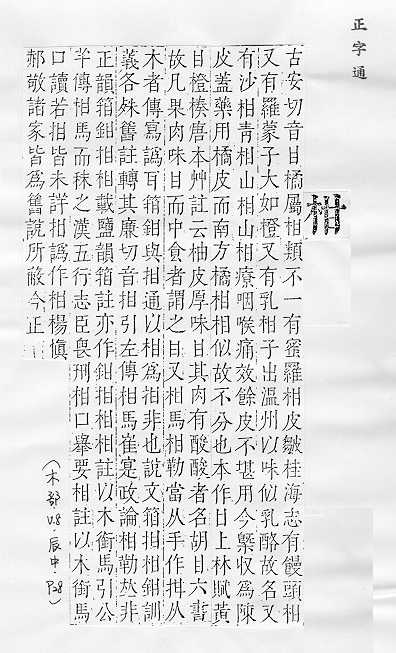 正字通
柑
古安切音甘橘屬柑類不一有蜜羅柑皮皺桂海志有饅頭柑
又有羅蒙子大如橙又有乳柑子出溫州以味似乳酪故名又
有沙柑青柑山柑山柑療咽喉痛效餘皮不堪用今槩収爲陳
皮蓋藥用橘皮而南方橘柑相似故不分也本作甘上林賦黃
甘橙楱唐本艸註云柚皮厚味甘其肉有酸酸者名胡甘六書
故凡果肉味甘而中食者謂之甘又柑馬柑勒當从手作拑从
木者傳寫譌耳箝鉗與拑通以柑爲拑非也說文箝拑柑鉗訓
義各殊舊註轉其廉切音拑引左傳柑馬崔寔政論柑勒𠀤非
正韻箝鉗拑柑載鹽韻箝註亦作鉗拑柑柑註以木銜馬引公
羊傳柑馬而秣之漢五行志臣畏刑柑口舉要柑註以木銜馬
口讀若拑皆未詳拑譌作柑楊愼
郝敬諸家皆爲舊說所蔽今正
(木部 V.8.辰中.P38)